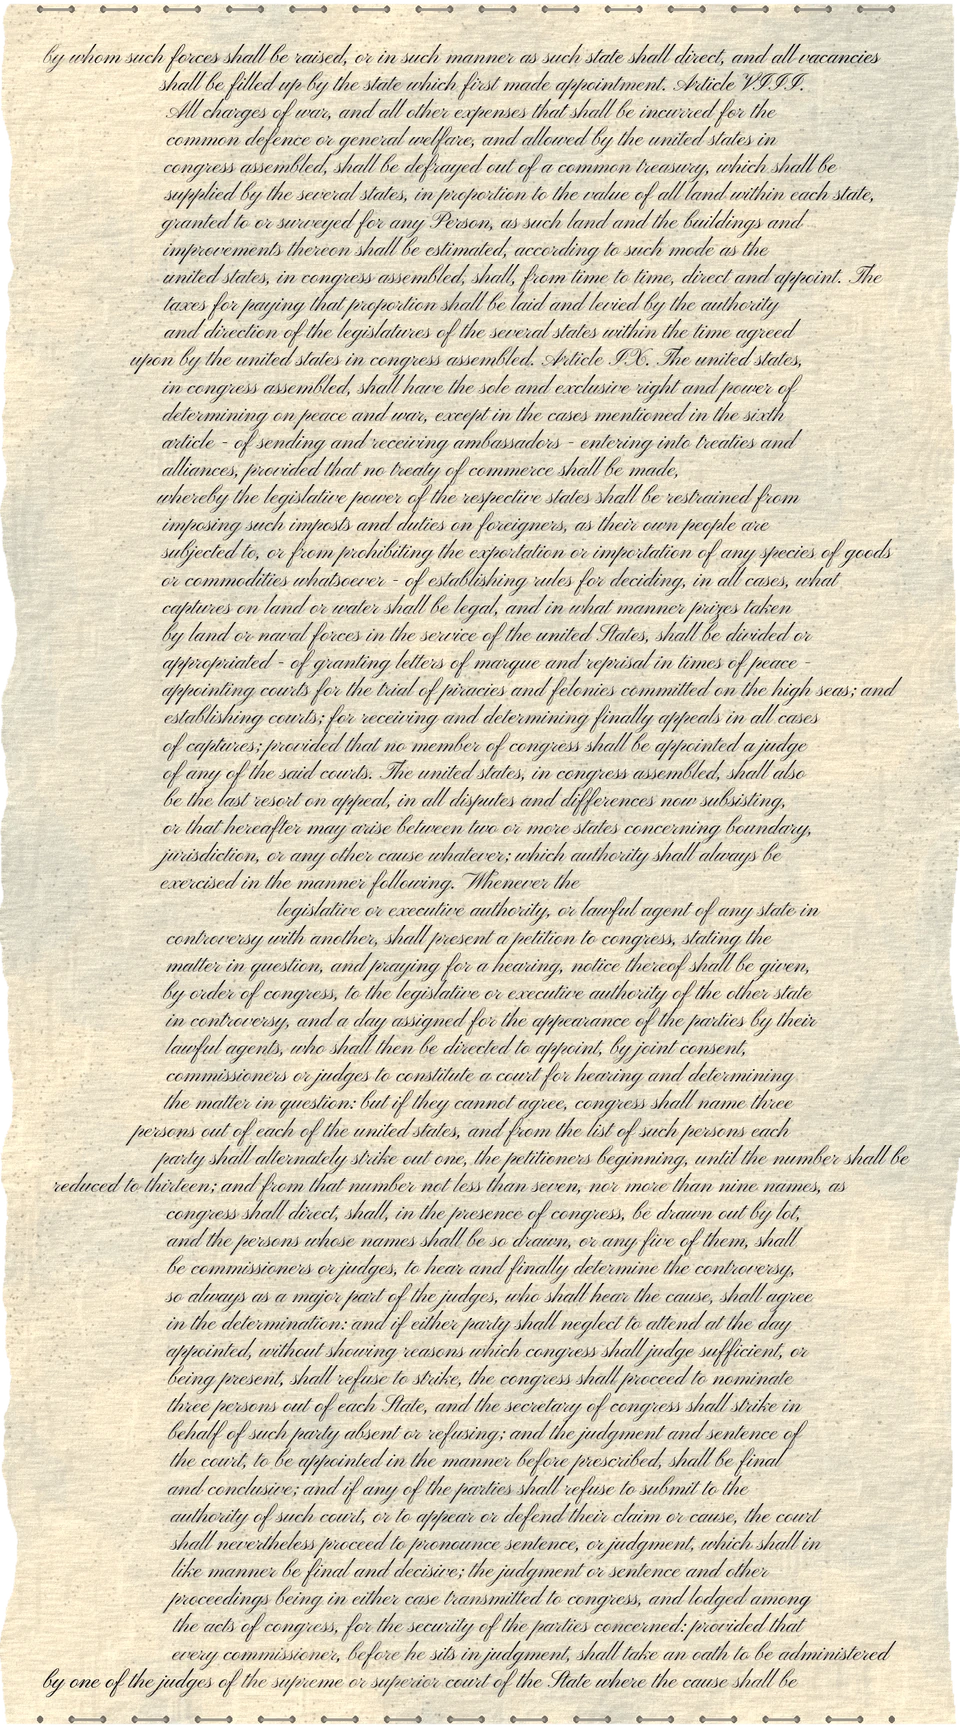 by whom such forces shall be raised, or in such manner as such state shall direct, and all vacancies
shall be filled up by the state which first made appointment. Article VIII.
All charges of war, and all other expenses that shall be incurred for the
common defence or general welfare, and allowed by the united states in
congress assembled, shall be defrayed out of a common treasury, which shall be
supplied by the several states, in proportion to the value of all land within each state,
granted to or surveyed for any Person, as such land and the buildings and
improvements thereon shall be estimated, according to such mode as the
united states, in congress assembled, shall, from time to time, direct and appoint. The
taxes for paying that proportion shall be laid and levied by the authority
and direction of the legislatures of the several states within the time agreed
upon by the united states in congress assembled. Article IX. The united states,
in congress assembled, shall have the sole and exclusive right and power of
determining on peace and war, except in the cases mentioned in the sixth
article - of sending and receiving ambassadors - entering into treaties and
alliances, provided that no treaty of commerce shall be made,
whereby the legislative power of the respective states shall be restrained from
imposing such imposts and duties on foreigners, as their own people are
subjected to, or from prohibiting the exportation or importation of any species of goods
or commodities whatsoever - of establishing rules for deciding, in all cases, what
captures on land or water shall be legal, and in what manner prizes taken
by land or naval forces in the service of the united States, shall be divided or
appropriated - of granting letters of marque and reprisal in times of peace -
appointing courts for the trial of piracies and felonies committed on the high seas; and
establishing courts; for receiving and determining finally appeals in all cases
of captures; provided that no member of congress shall be appointed a judge
of any of the said courts. The united states, in congress assembled, shall also
be the last resort on appeal, in all disputes and differences now subsisting,
or that hereafter may arise between two or more states concerning boundary,
jurisdiction, or any other cause whatever; which authority shall always be
exercised in the manner following. Whenever the
legislative or executive authority, or lawful agent of any state in
controversy with another, shall present a petition to congress, stating the
matter in question, and praying for a hearing, notice thereof shall be given,
by order of congress, to the legislative or executive authority of the other state
in controversy, and a day assigned for the appearance of the parties by their
lawful agents, who shall then be directed to appoint, by joint consent,
commissioners or judges to constitute a court for hearing and determining
the matter in question: but if they cannot agree, congress shall name three
persons out of each of the united states, and from the list of such persons each
party shall alternately strike out one, the petitioners beginning, until the number shall be
reduced to thirteen; and from that number not less than seven, nor more than nine names, as
congress shall direct, shall, in the presence of congress, be drawn out by lot,
and the persons whose names shall be so drawn, or any five of them, shall
be commissioners or judges, to hear and finally determine the controversy,
so always as a major part of the judges, who shall hear the cause, shall agree
in the determination: and if either party shall neglect to attend at the day
appointed, without showing reasons which congress shall judge sufficient, or
being present, shall refuse to strike, the congress shall proceed to nominate
three persons out of each State, and the secretary of congress shall strike in
behalf of such party absent or refusing; and the judgment and sentence of
the court, to be appointed in the manner before prescribed, shall be final
and conclusive; and if any of the parties shall refuse to submit to the
authority of such court, or to appear or defend their claim or cause, the court
shall nevertheless proceed to pronounce sentence, or judgment, which shall in
like manner be final and decisive; the judgment or sentence and other
proceedings being in either case transmitted to congress, and lodged among
the acts of congress, for the security of the parties concerned: provided that
every commissioner, before he sits in judgment, shall take an oath to be administered
by one of the judges of the supreme or superior court of the State where the cause shall be